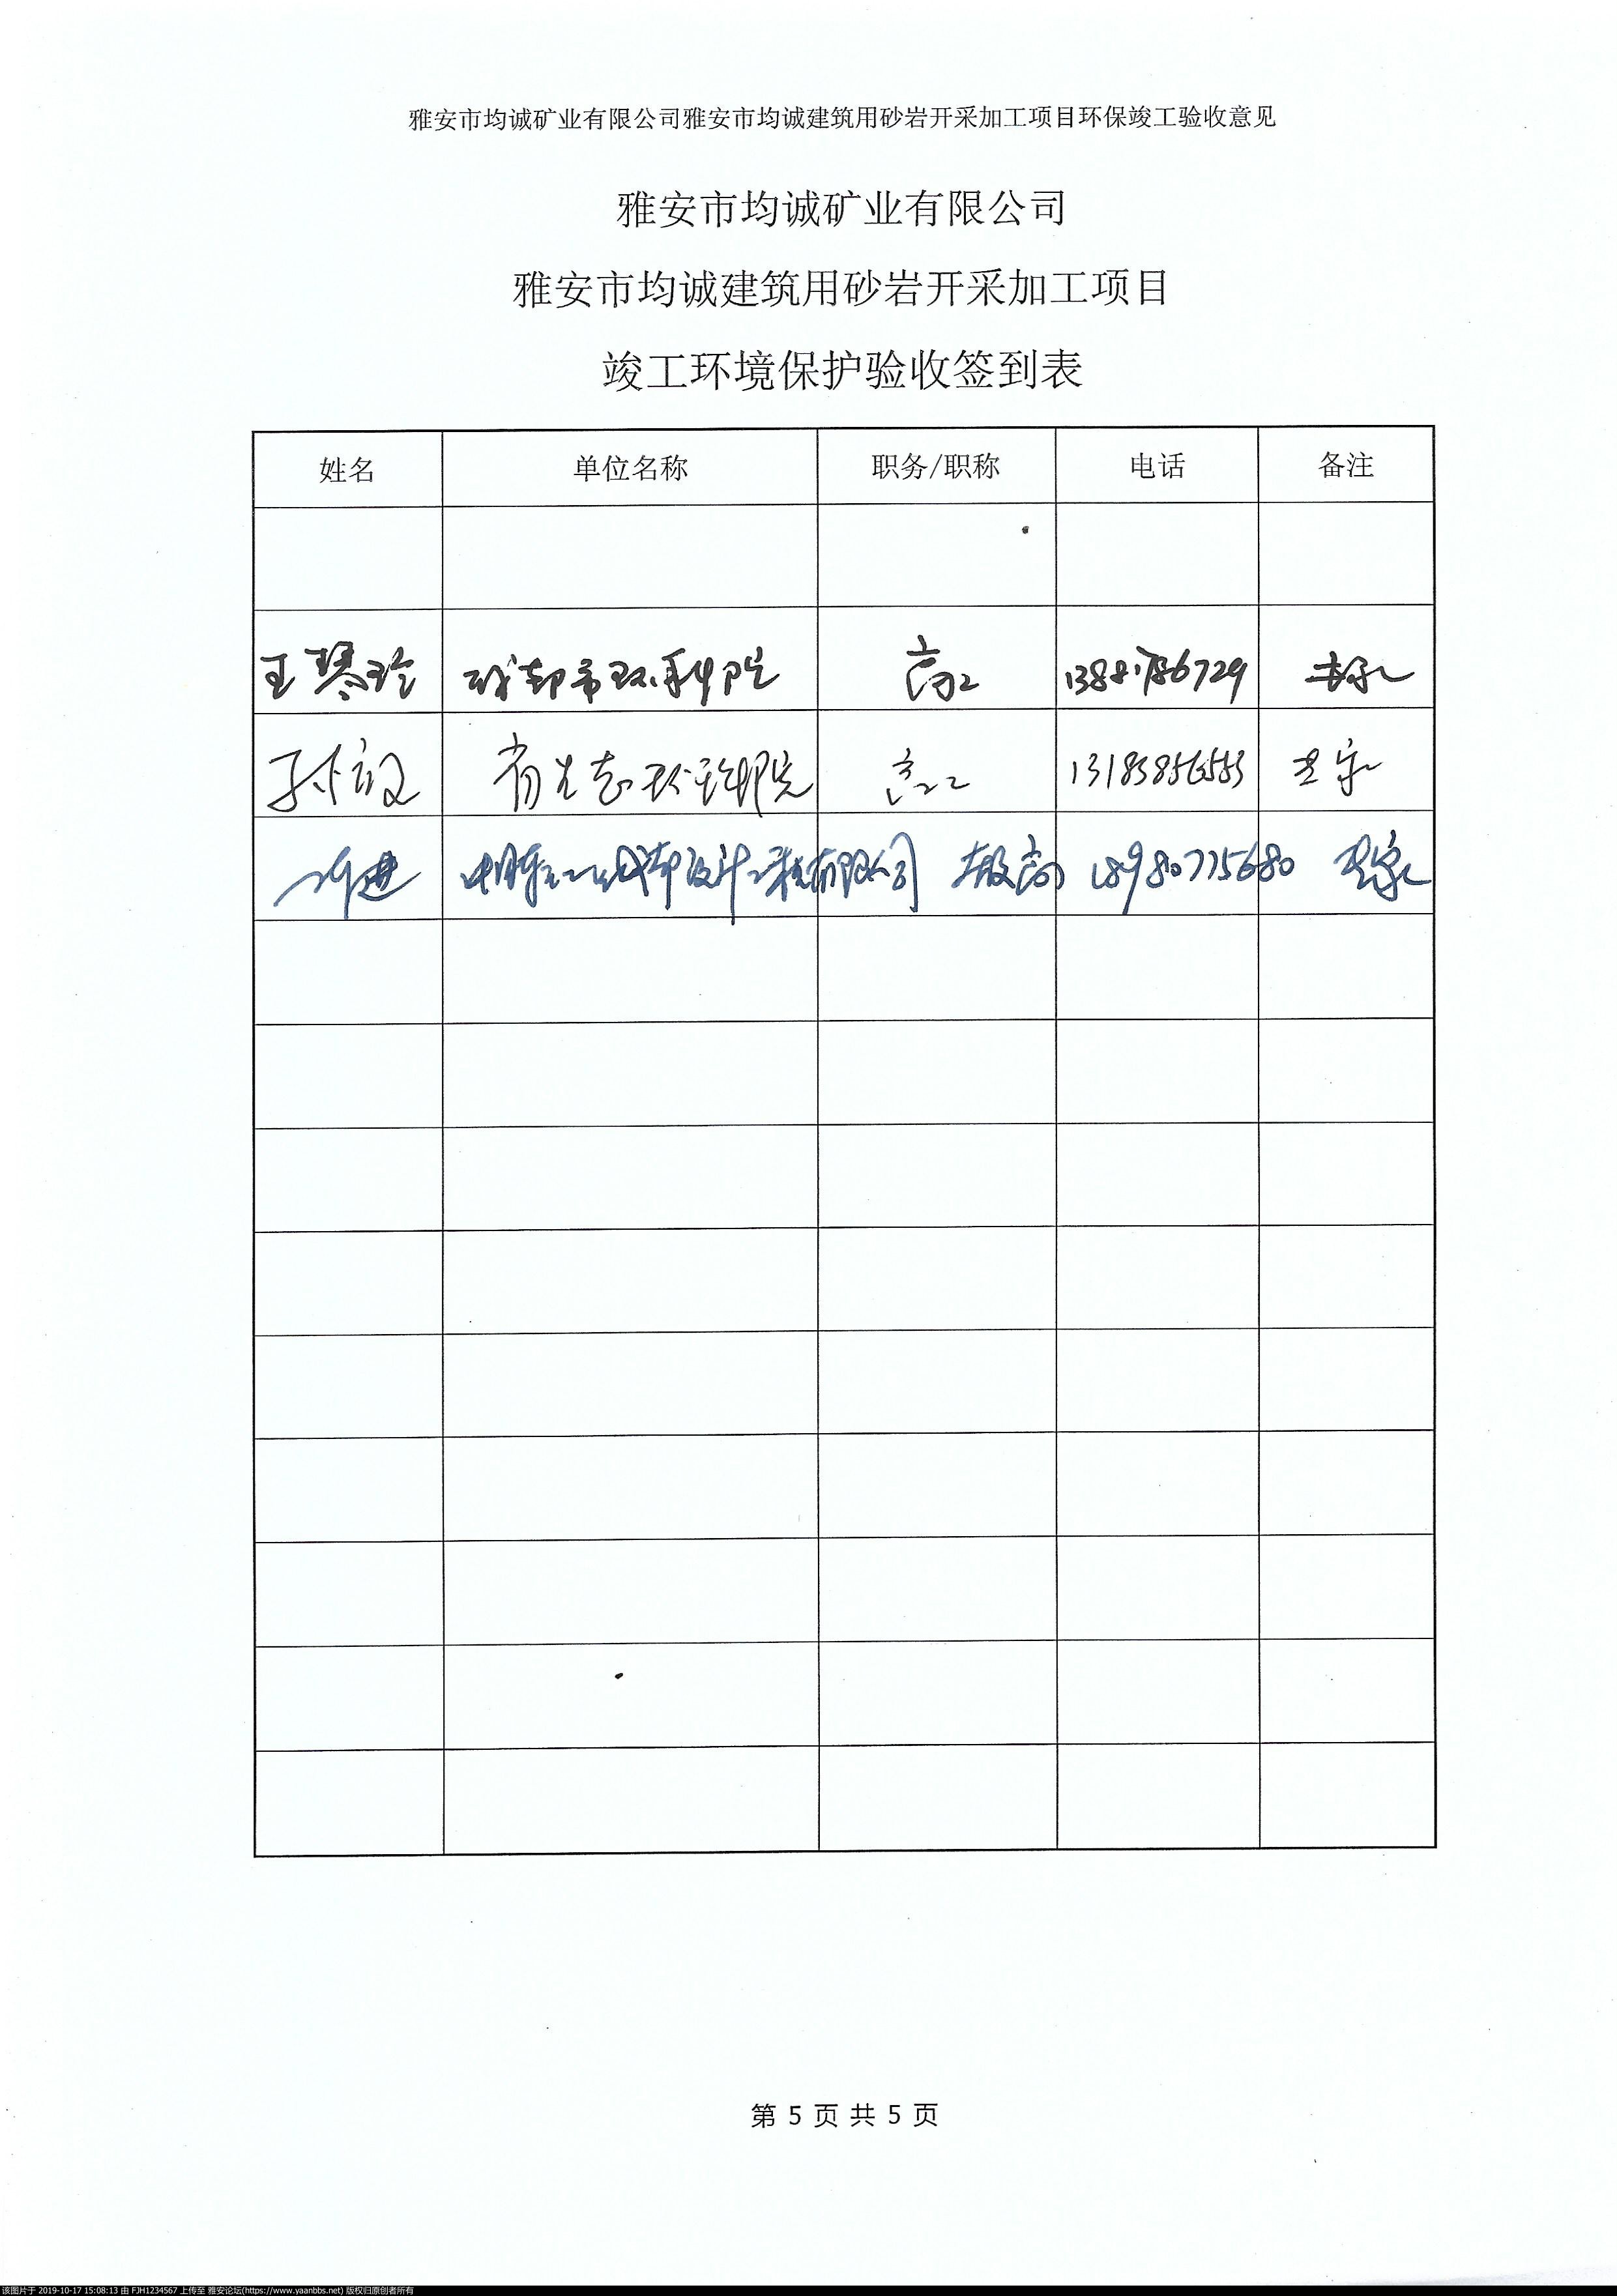 雅安市均诚矿业有限公司雅安市均诚建筑用砂岩开采加工项目环保竣工验收意见
雅安市均诚矿业有限公司
雅安市均诚建筑用砂岩开采加工项目
竣工环境保护验收签到表
姓名 单位名称 职务/职称 电话 备注
王琴玲 成都市环科院 高工 专家
高工 专家
成都设计工程有限公司 教高 18980775680 专家
第 5 页 共 5 页
该图片于 2019-10-17 15:08:13 由 FJH1234567 上传至 雅安论坛(https://www.yaanbbs.net) 版权归原创者所有